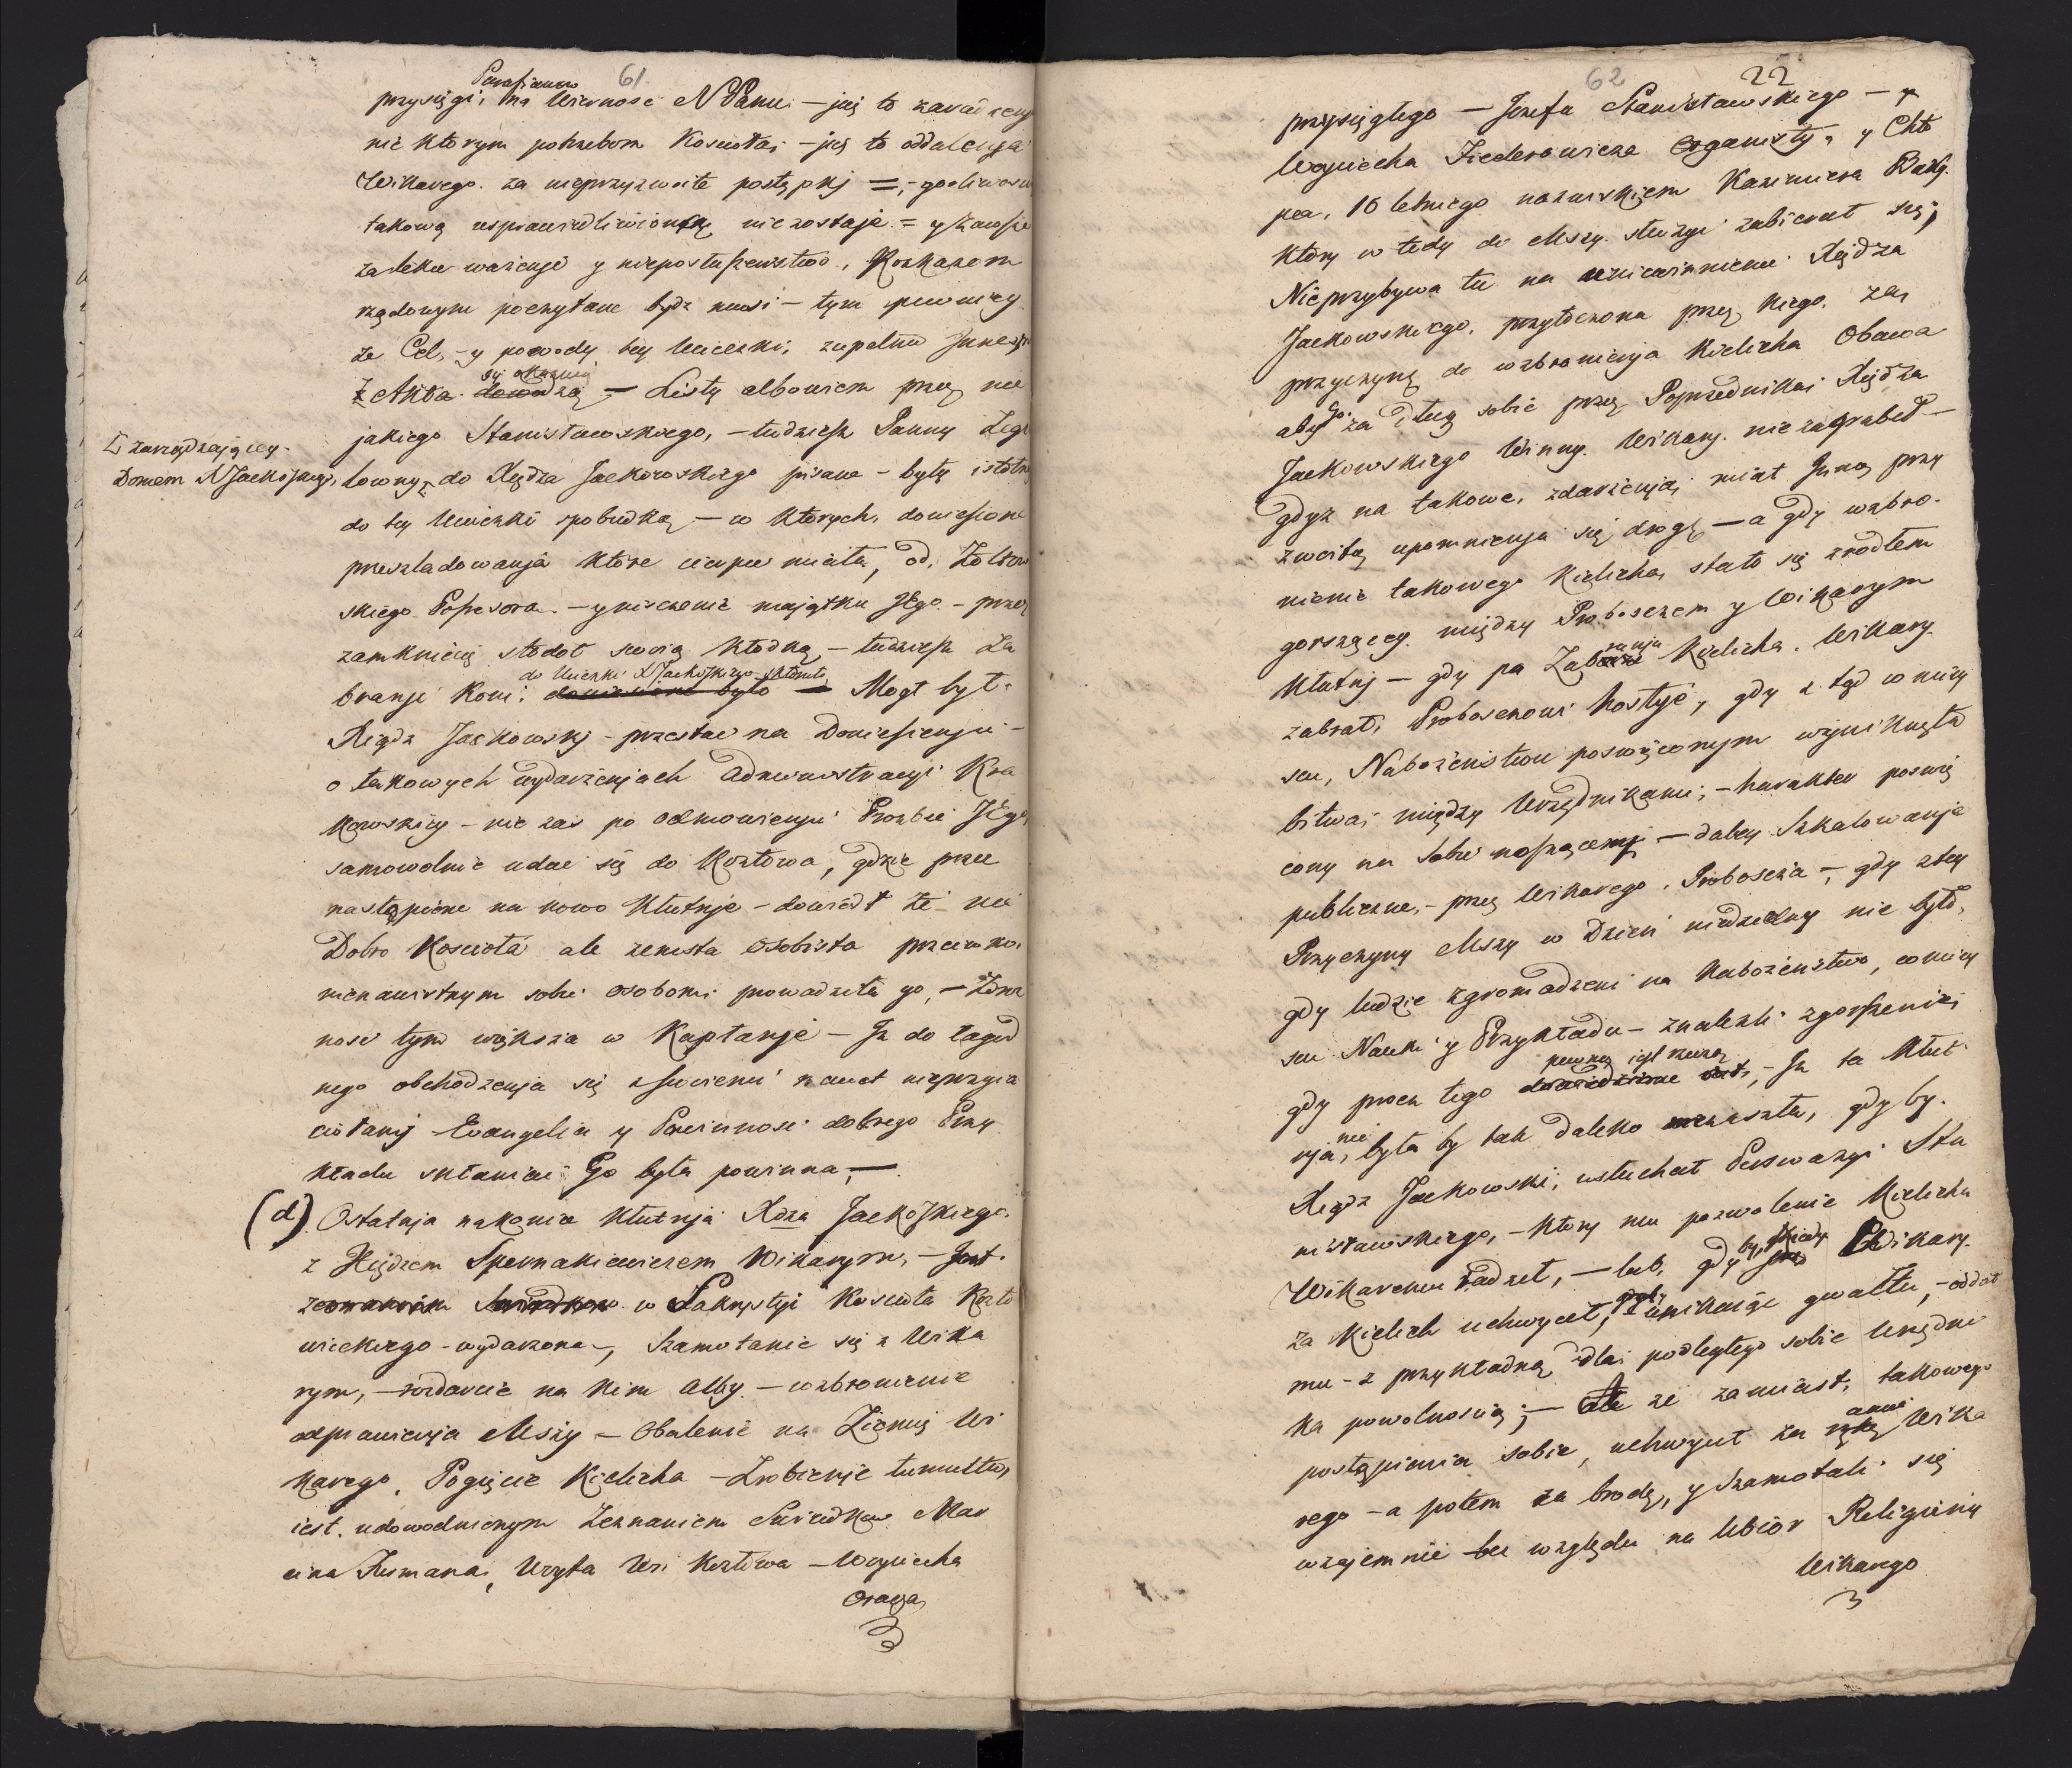 61.
Parafianow
przysięgi, na Wiernosc NPanu. – już to zaradzeni
nie ktorym potrzebom Kosciołai – już to oddalenja
Wikarego. za nieprzyzwoite postępki =, – gorliwosci
takową usprawiedliwioną nie zostaje = y zawsze
za lekce ważenje y nieposłuszenstwo, Rozkazom
rządowym poczytane bydz musi – tym pewniey
że Cel, – y powody tey Ucieczki, zupełnie Inne
się okazują
z Akta dowodzą – Listy albowiem przez nie
jakiego Stanisławskiego, – tudziesz Panny
Z zarządzającey
Domem XJackoskiego,
do Xiędza Jackowskiego pisane – były istotną
do tey Ucieczki pobudką – w ktorych, doniesione
przesladowanja ktore cierpiec miała, od,
skiego Possesora – y niszczenie majątku Jego – przez
zamknięcie stodoł swoią kłodką – tudziesz Za
do Ucieczki XJackoskiego skłoniło
branje Koni, doniesione było – Mogł był.
Xiądz Jackowskj – przestac na Doniesienju –
o takowych wydarzenjach Administracyi Kra
kowskiey – nie zas po odmowienju Prozbie JEgo,
samowolnie udac się do Kozłowa, gdzie przed
nastąpione na nowo kłutnje – dowiodł że nie
Dobro Kosciołá ale zemsta osobista przeciwko,
nienawistnym sobie osobom, prowadziła go, –
nosc tym większa w Kapłanje – Iz do łagod
nego obchodzenja się z swoiemi nawet nieprzyia
ciołamj Ewangelia y Powinnosc dobrego Przy
kładu skłaniac Go była powinna, –
(d) Ostatnja nakoniec kłutnja Xdza Jackoskiego.
z Xiędzem Spernakiewiczem Wikarym, – Jest.
w Zakrystyi Koscioła Kozło
wieckiego – wydarzona –, Szamotanie się z Wika
rym, – rozdarcie na nim Alby – wzbronienie
odprawienja Mszy – Obalenie na Ziemię Wi
karego, Pogięcie Kielicha – Zrobienje tumultu,
iest. udowodnionym Zeznaniem Swiadkow Mar
cina Kumana, Woyta Wsi Kozłowa – Woyciecha
Oracza,

62 22
przysięgłego – Jozefa Stanisławskiego – y
Woyciecha Fiederowicza Organisty, y Chło
pca, 16 letniego nazwiskiem Kazimierza
ktory w tedy do Mszy. służyc zabierał się,
Nieprzybywa tu na uniewinnienie Xiędza
Jackowskiego, przytoczona przez niego, za,
przyczynę do wzbronienja Kielicha Obawa
go.
aby za Dług sobie przez Poprzednikai Xiędza
Jackowskiego Winny. Wikary. nie zagrabił –
gdyz na takowe, zdarzenja, miał Inną przy
zwoitą upomnienja się drogę – a gdy wzbro-
nienie takowego Kielicha, stało się zrodłem
gorszącey. między Proboszczem y Wikarym
kłutnj – gdy po Zabranja Kielicha. Wikary.
zabrał, Proboszczowi hostye, gdy z tąd w miey
scu, Nabożenstwu poswięconym wynikneła
bitwa, między Urzędnikami, – harakter poswię
cony na sobie noszącemj – daley Szkalowanje
publiczne, – przez Wikarego, Proboscza –, gdy ztey
Przyczyny Mszy w Dzien niedzielny nie było,
gdy ludzie zgromadzeni na Nabożenstwo, w miey
scu Nauki y Przykładu – znalezli zgorszenie,
pewną iest rzeczą
gdy procz tego dowiedzione iest, – Iz ta kłut
nie
nja, była by tak daleko zaszła, gdy by.
Xiądz Jackowski, usłuchał Perswazyi Sta
nisławskiego, – ktory mu pozwolenie Kielicha
Wikaremu radził, – lub, gdy by, kiedy Wikary.
za Kielich uchwycił, unikaiąc gwałtu, – oddał
mu – z przykładną dla, podległego sobie Urzędni
ka powolnoscią; – Ale ze zamiast, takowego
postąpienia sobie, uchwycił za rękę Wika
rego – a potem za brodę, y Szamotali się
wzajemnie bez względu na Ubior Religiiny
Wikarego